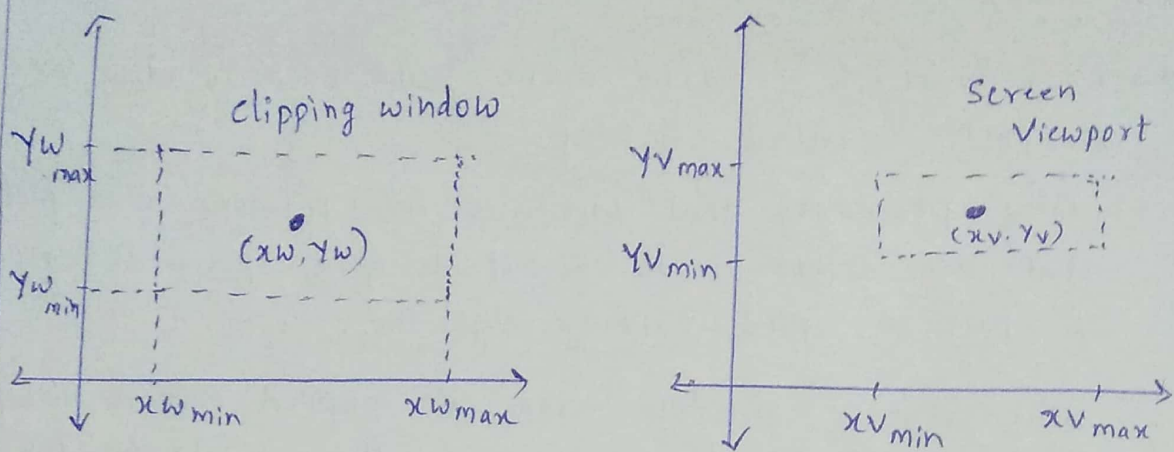 Clipping window
Yw max
(xw, Yw)
Yw min
xw min
xw max
Screen
Viewport
Yv max
(xv, Yv)
Yv min
xv min
xv max